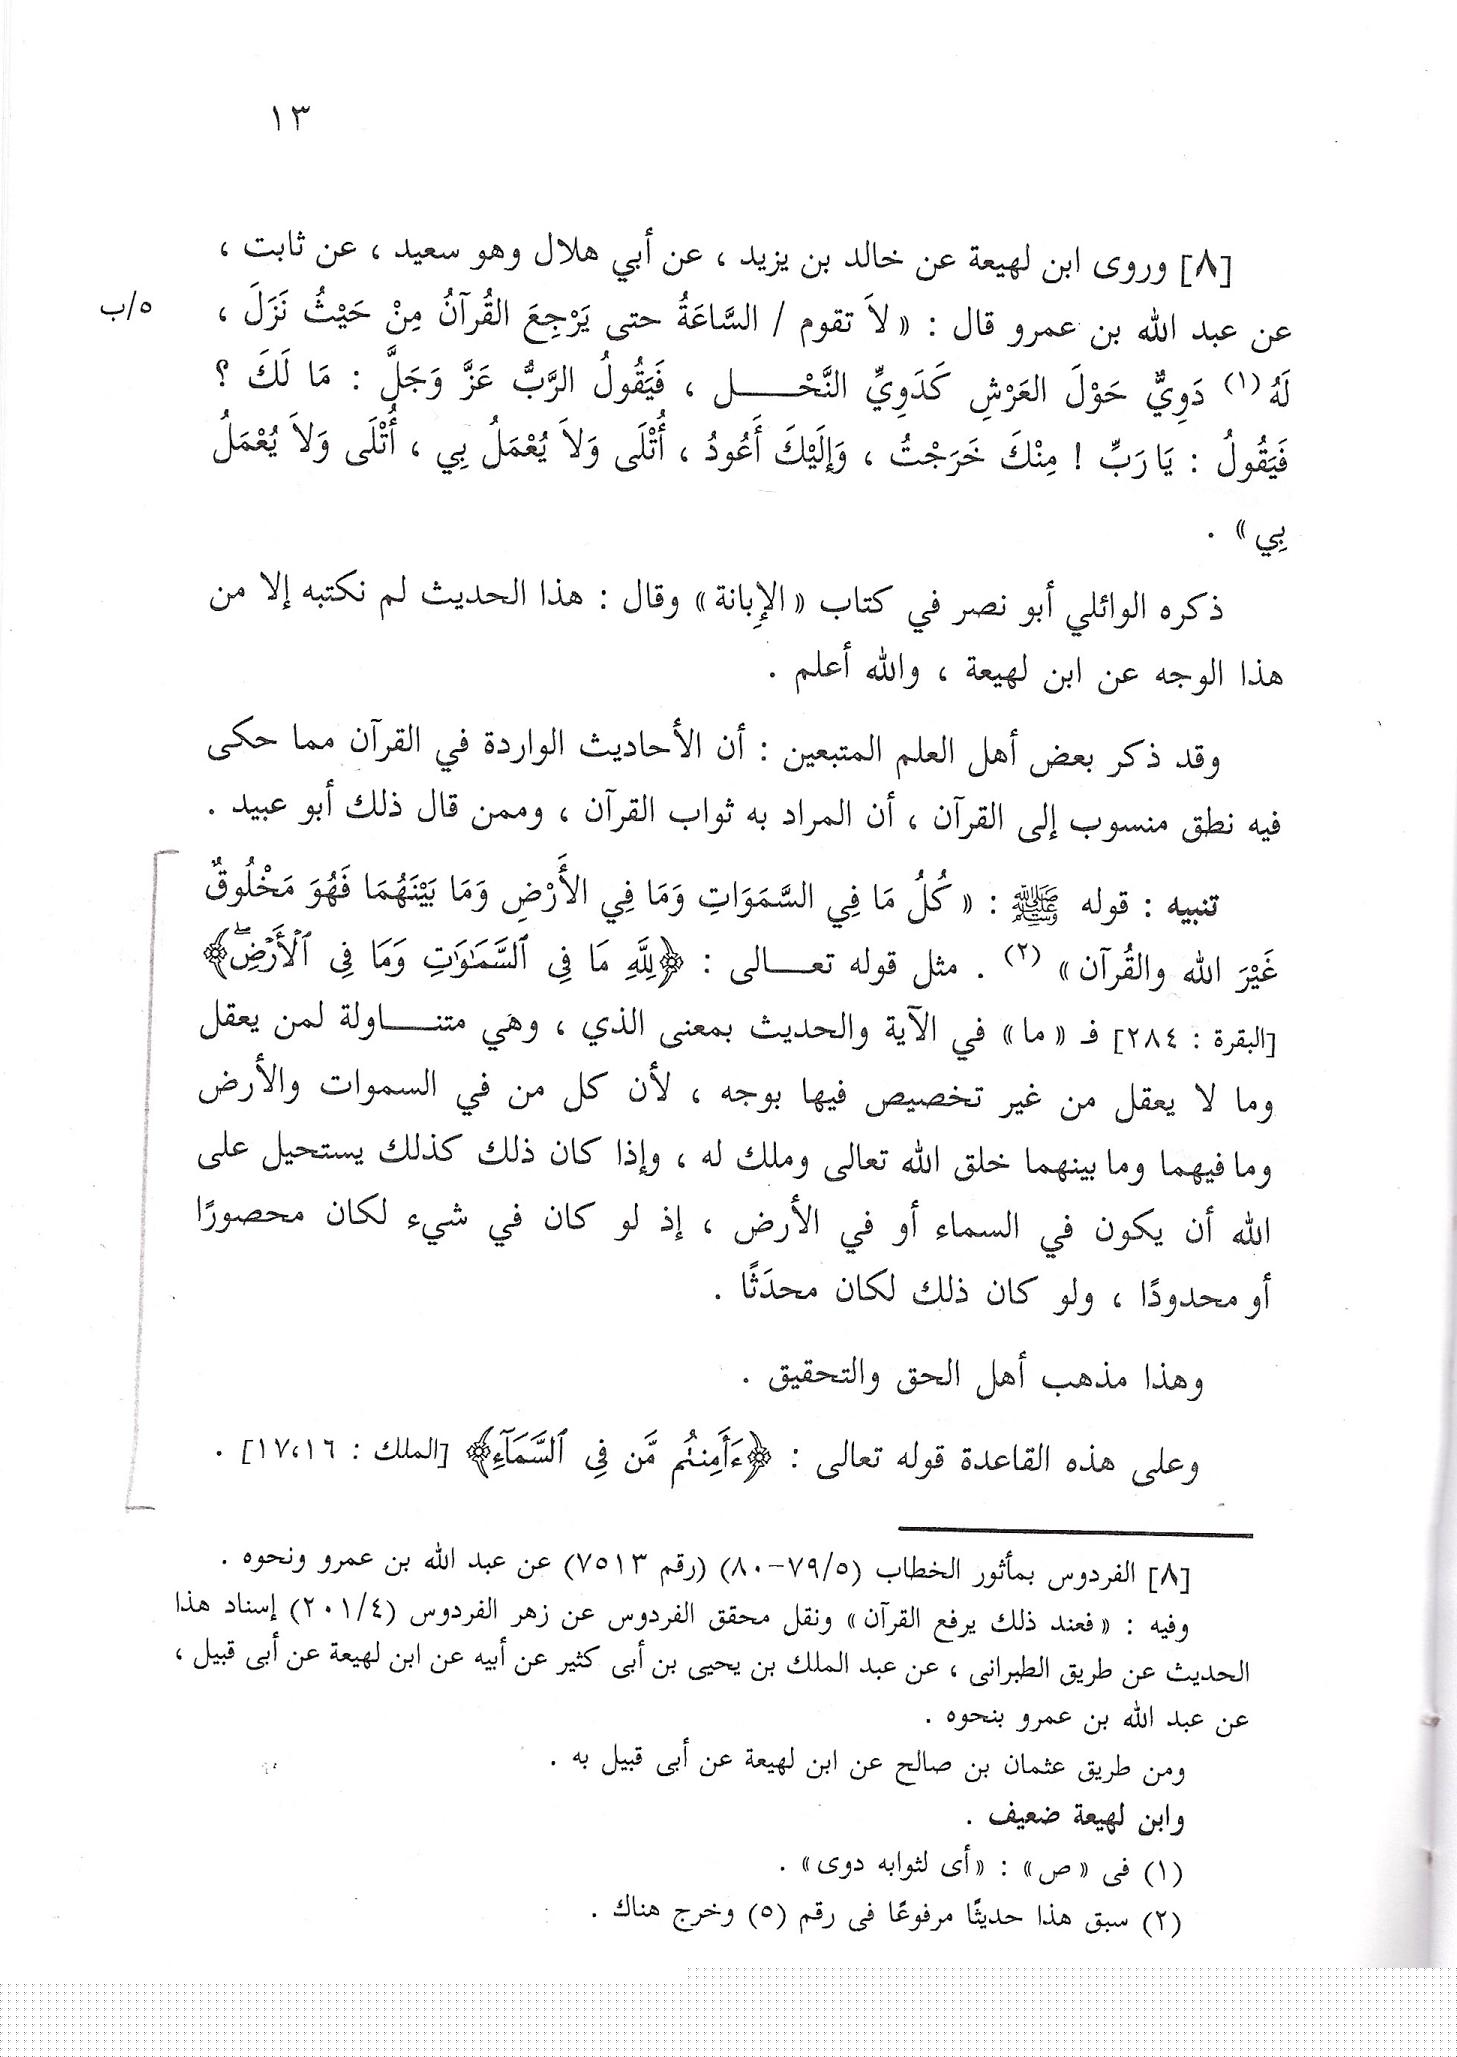 ١٣
[٨] وروى ابن لهيعة عن خالد بن يزيد ، عن أبي هلال وهو سعيد ، عن ثابت ،
عن عبد الله بن عمرو قال : « لاَ تقوم / السَّاعَةُ حتى يَرْجِعَ القُرآنُ مِنْ حَيْثُ نَزَلَ ،
٥/ب
لَهُ (١) دَوِيٌّ حَوْلَ العَرْشِ كَدَوِيِّ النَّحْـــــل ، فَيَقُولُ الرَّبُّ عَزَّ وَجَلَّ : مَا لَكَ ؟
فَيَقُولُ : يَا رَبِّ ! مِنْكَ خَرَجْتُ ، وَإِلَيْكَ أَعُودُ ، أُتْلَى وَلاَ يُعْمَلُ بِي ، أُتْلَى وَلاَ يُعْمَلُ
بِي » .
ذكره الوائلي أبو نصر في كتاب « الإِبانة » وقال : هذا الحديث لم نكتبه إلا من
هذا الوجه عن ابن لهيعة ، والله أعلم .
وقد ذكر بعض أهل العلم المتبعين : أن الأحاديث الواردة في القرآن مما حكى
فيه نطق منسوب إلى القرآن ، أن المراد به ثواب القرآن ، وممن قال ذلك أبو عبيد .
تنبيه : قوله ﷺ : « كُلُ مَا فِي السَّمَوَاتِ وَمَا فِي الأَرْضِ وَمَا بَيْنَهُمَا فَهُوَ مَخْلُوقٌ
غَيْرَ الله والقُرآن » (٢) . مثل قوله تعـــالى : ﴿لِلَّهِ مَا فِى ٱلسَّمَـٰوَٰتِ وَمَا فِى ٱلْأَرْضِۗ﴾
[البقرة : ٢٨٤] فـ « ما » في الآية والحديث بمعنى الذي ، وهي متنـــاولة لمن يعقل
وما لا يعقل من غير تخصيص فيها بوجه ، لأن كل من في السموات والأرض
وما فيهما وما بينهما خلق الله تعالى وملك له ، وإذا كان ذلك كذلك يستحيل على
الله أن يكون في السماء أو في الأرض ، إذ لو كان في شيء لكان محصورًا
أو محدودًا ، ولو كان ذلك لكان محدَثًا .
وهذا مذهب أهل الحق والتحقيق .
وعلى هذه القاعدة قوله تعالى : ﴿ءَأَمِنتُم مَّن فِى ٱلسَّمَآءِ﴾ [الملك : ١٧،١٦] .
[٨] الفردوس بمأثور الخطاب (٧٩/٥-٨٠) (رقم ٧٥١٣) عن عبد الله بن عمرو ونحوه .
وفيه : « فعند ذلك يرفع القرآن » ونقل محقق الفردوس عن زهر الفردوس (٢٠١/٤) إسناد هذا
الحديث عن طريق الطبرانى ، عن عبد الملك بن يحيى بن أبى كثير عن أبيه عن ابن لهيعة عن أبى قبيل ،
عن عبد الله بن عمرو بنحوه .
ومن طريق عثمان بن صالح عن ابن لهيعة عن أبى قبيل به .
وابن لهيعة ضعيف .
(١) فى « ص » : « أى لثوابه دوى » .
(٢) سبق هذا حديثًا مرفوعًا فى رقم (٥) وخرج هناك .